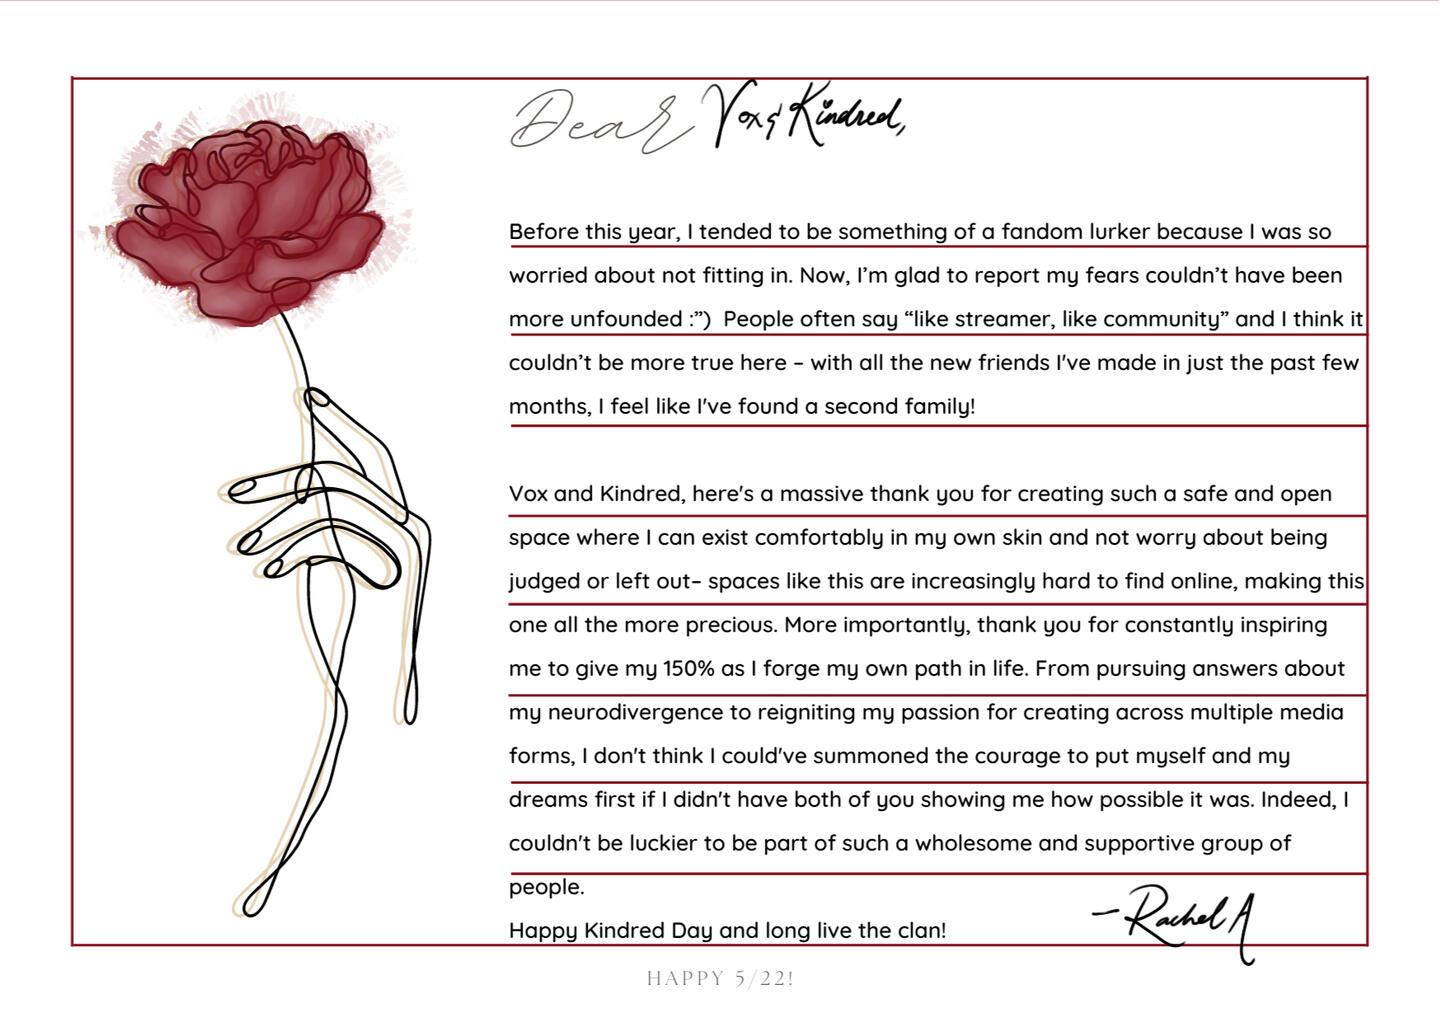 Dear Vox & Kindred,
Before this year, I tended to be something of a fandom lurker because I was so
worried about not fitting in. Now, I’m glad to report my fears couldn’t have been
more unfounded :”)  People often say “like streamer, like community” and I think it
couldn’t be more true here – with all the new friends I've made in just the past few
months, I feel like I've found a second family!
Vox and Kindred, here's a massive thank you for creating such a safe and open
space where I can exist comfortably in my own skin and not worry about being
judged or left out– spaces like this are increasingly hard to find online, making this
one all the more precious. More importantly, thank you for constantly inspiring
me to give my 150% as I forge my own path in life. From pursuing answers about
my neurodivergence to reigniting my passion for creating across multiple media
forms, I don't think I could've summoned the courage to put myself and my
dreams first if I didn't have both of you showing me how possible it was. Indeed, I
couldn't be luckier to be part of such a wholesome and supportive group of
people.
Happy Kindred Day and long live the clan!
– Rachel A
HAPPY 5/22!